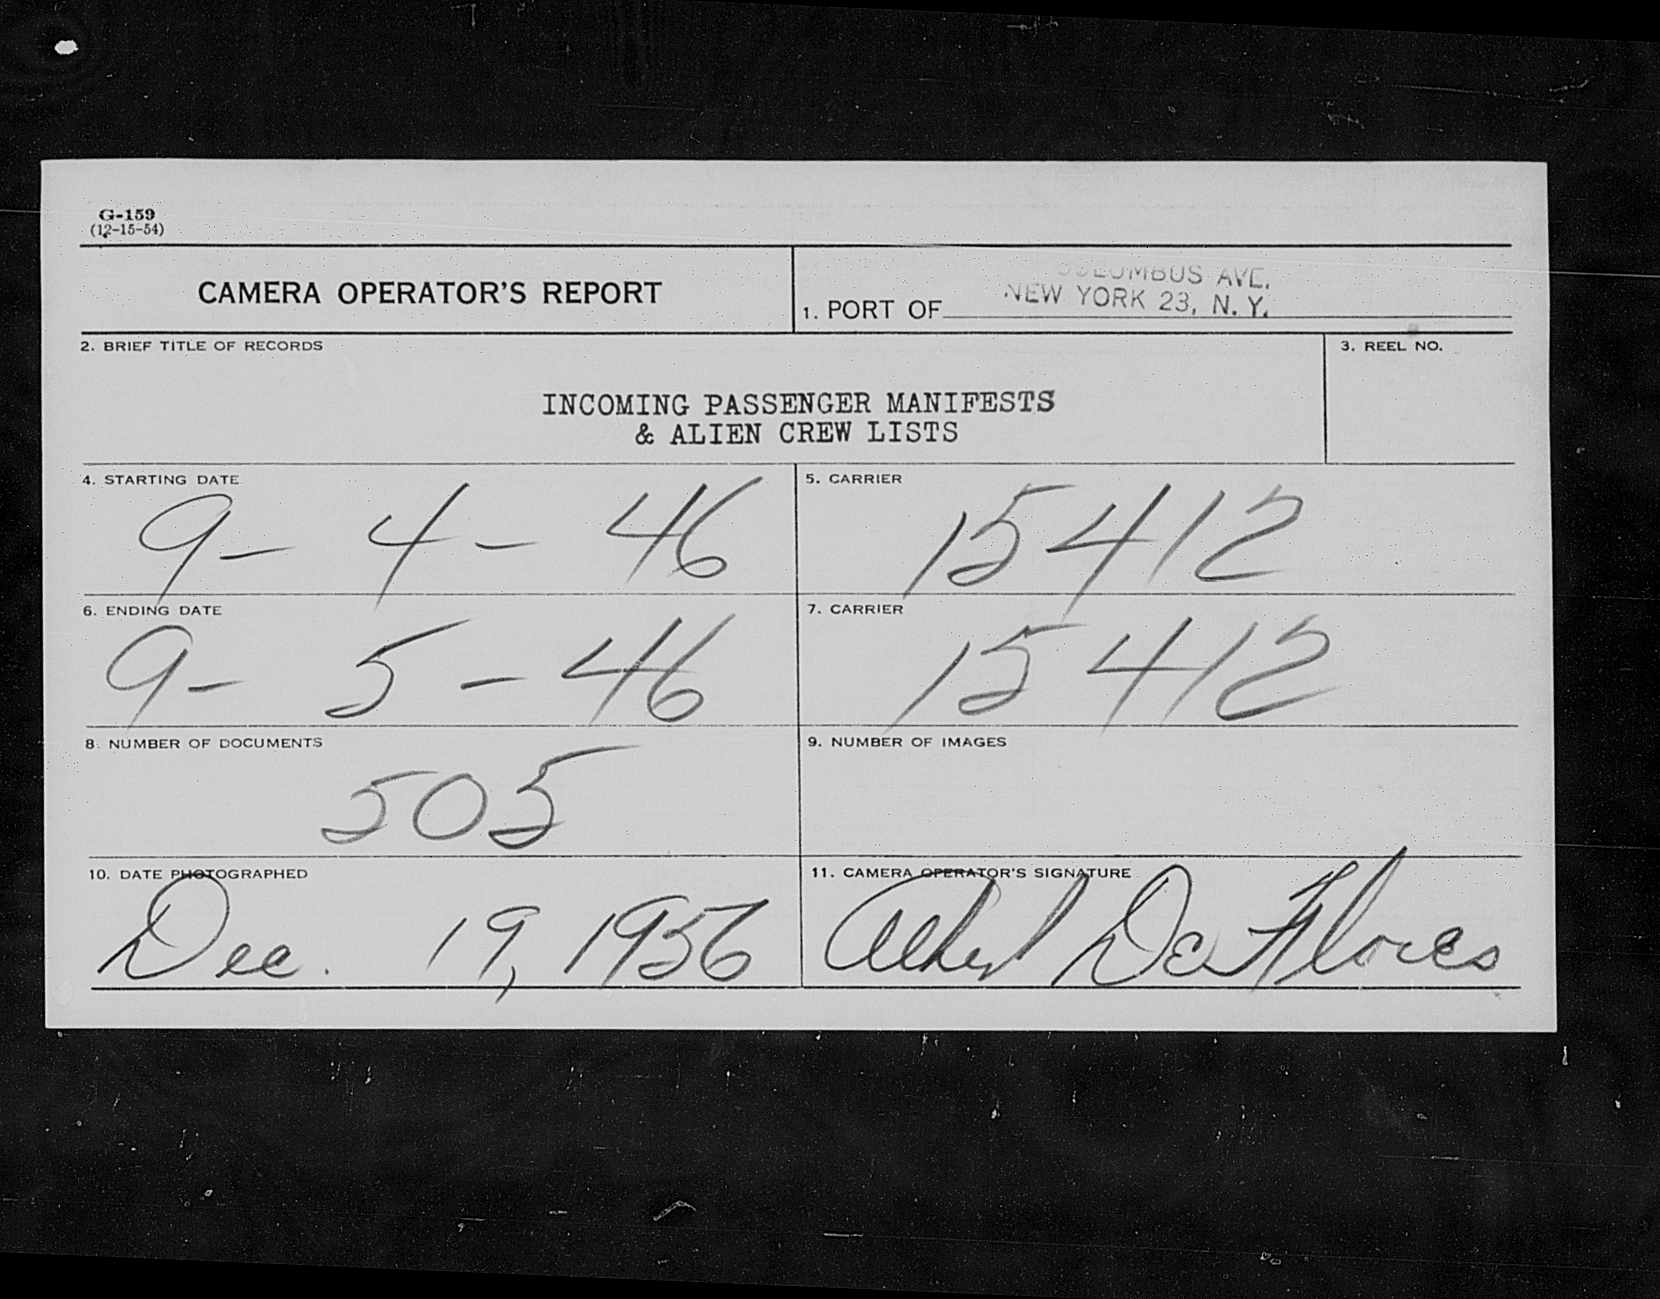 G-159
(12-15-54)
CAMERA OPERATOR'S REPORT
COLUMBUS AVE.
NEW YORK 23, N. Y.
1. PORT OF
2. BRIEF TITLE OF RECORDS
3. REEL NO.
INCOMING PASSENGER MANIFESTS
& ALIEN CREW LISTS
4. STARTING DATE
9 - 4 - 46
5. CARRIER
15412
6. ENDING DATE
9 - 5 - 46
7. CARRIER
15412
8. NUMBER OF DOCUMENTS
505
9. NUMBER OF IMAGES
10. DATE PHOTOGRAPHED
Dec. 19, 1956
11. CAMERA OPERATOR'S SIGNATURE
De Flores